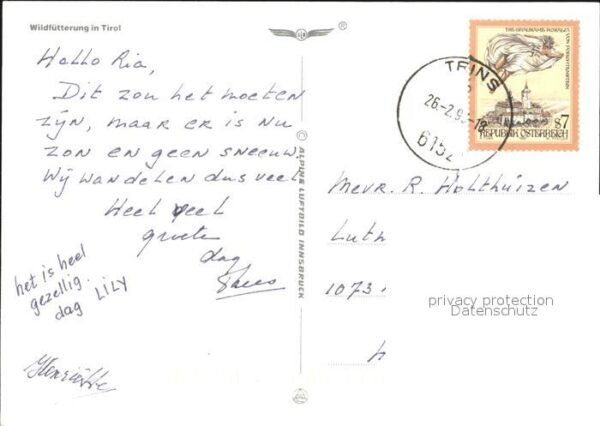 Wildfütterung in Tirol
Hallo Ria,
Dit zou het moeten
zijn, maar er is nu
zon en geen sneeuw.
Wij wandelen dus veel
Heel veel
groeten
dag
het is heel
gezellig.
dag LILY
Henriëtte
ALPINE LUFTBILD INNSBRUCK
TRINS
26-2.9
6152
REPUBLIK ÖSTERREICH
S7
Mevr. R. Holthuizen
Luth
1073
privacy protection
Datenschutz